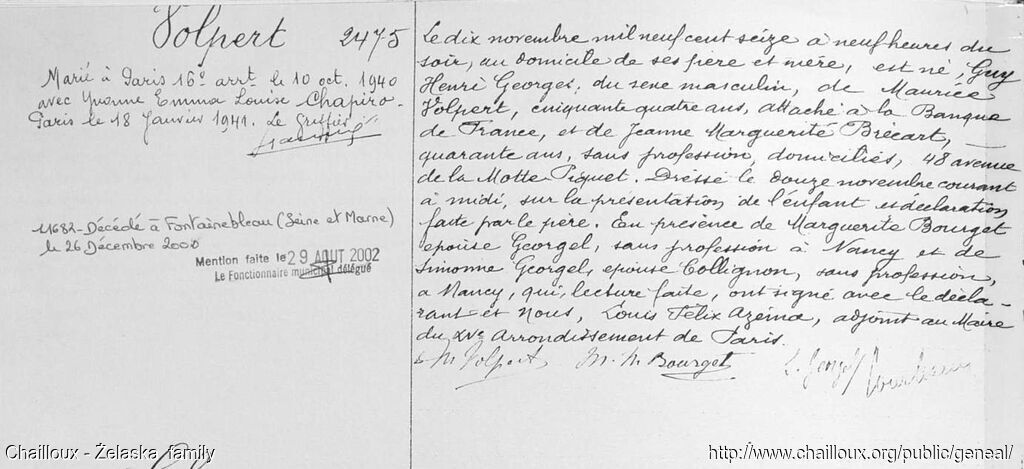 Volpert 2475
Marié à Paris 16e arrt le 10 oct. 1940
avec Yvonne Emma Louise Chapiro.
Paris le 18 Janvier 1941. Le Greffier
11682-Décédé à Fontainebleau (Seine et Marne)
le 26 Décembre 2000
Mention faite le 29 AOUT 2002
Le Fonctionnaire municipal délégué
Le dix novembre mil neuf cent seize à neuf heures du
soir, au domicile de ses père et mère, est né, Guy
Henri Georges, du sexe masculin, de Maurice
Volpert, cinquante quatre ans, attaché à la Banque
de France, et de Jeanne Marguerite Brécart, —
quarante ans, sans profession, domiciliés, 48 avenue
de la Motte-Piquet. Dressé le douze novembre courant
à midi, sur la présentation de l'enfant et déclaration
faite par le père. En présence de Marguerite Bourget
épouse Georgel, sans profession à Nancy et de
Simonne Georgel, épouse Collignon, sans profession,
a Nancy, qui, lecture faite, ont signé avec le décla-
rant et Nous, Louis Félix Azema, adjoint au Maire
du XVe Arrondissement de Paris.
M Volpert M. M Bourget S. Georgel
Chailloux - Želaska family
http://www.chailloux.org/public/geneal/